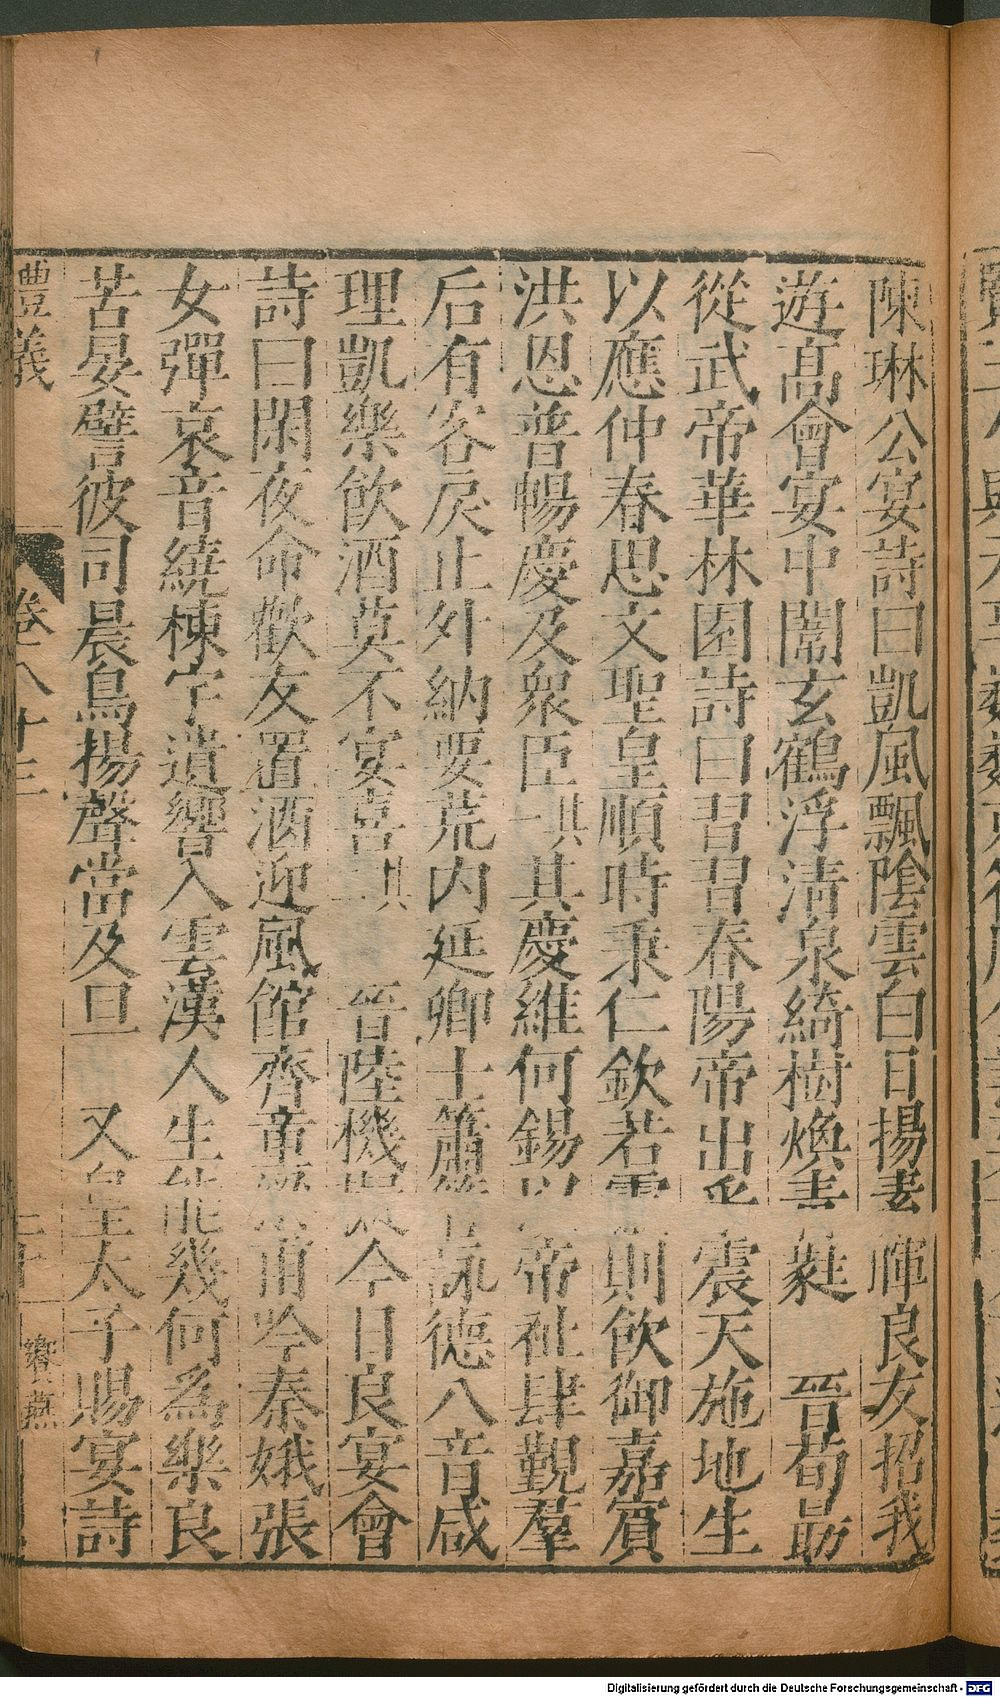 陳琳公宴詩曰凱風飄陰雲白日揚素暉良友招我
遊高會宴中闈玄鶴浮清泉綺樹煥青蕤　晉荀勗
從武帝華林園詩曰習習春陽帝出乎震天施地生
以應仲春思文聖皇順時秉仁欽若靈則飲御嘉賓
洪恩普暢慶及衆臣一其其慶維何錫以帝祉肆覲羣
后有客戾止外納要荒内延卿士簫管詠德八音咸
理凱樂飲酒莫不宴喜二其　晉陸機今日良宴會
詩曰閑夜命歡友置酒迎風館齊童梁甫吟秦娥張
女彈哀音繞棟宇遺響入雲漢人生能幾何爲樂良
苦晏譬彼司晨鳥揚聲當及旦　又皇太子賜宴詩
豊義　卷八十三　饗燕
Digitalisierung gefördert durch die Deutsche Forschungsgemeinschaft - DFG